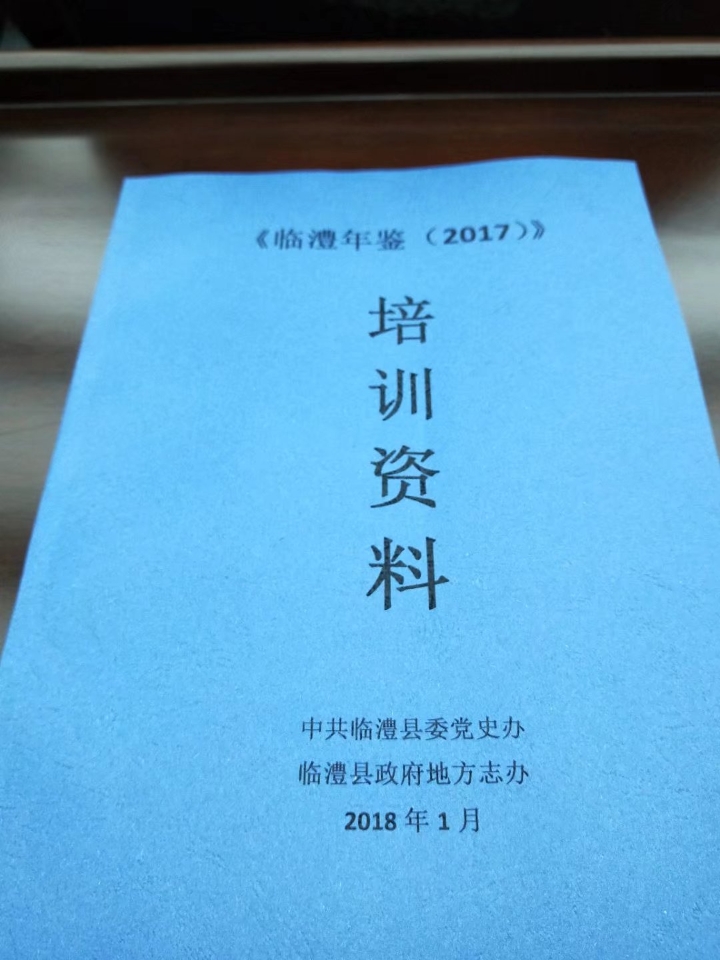 《临澧年鉴（2017）》
培训资料
中共临澧县委党史办
临澧县政府地方志办
2018 年 1 月